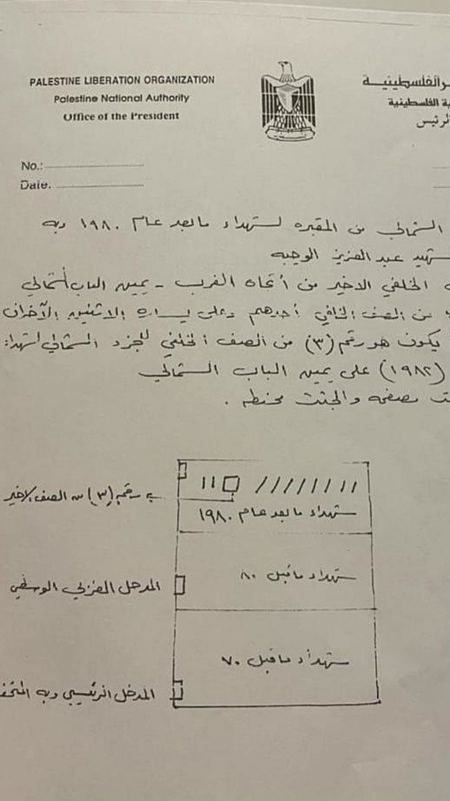 PALESTINE LIBERATION ORGANIZATION
Palestine National Authority
Office of the President
الفلسطينية
الفلسطينية
الرئيس
No.:
Date.
الشمالي من المقبره لشهداء ما بعد عام ١٩٨٠ وبه
عبد العزيز الوجيه
الخلفي الاخير من اتجاه الغرب - يمين الباب الشمالي
من الصف الخلفي أحدهم وعلى يساره الاثنين الآخران
يكون هو رقم (٣) من الصف الخلفي للجزء الشمالي لشهداء
(١٩٨٢) على يمين الباب الشمالي
مصفحه والجثث محنطه .
رقم (٣) من الصف الاخير
شهداء ما بعد عام ١٩٨٠
المدخل الغربي الوسطي
شهداء ما قبل ٨٠
شهداء ما قبل ٧٠
المدخل الرئيسي وبه